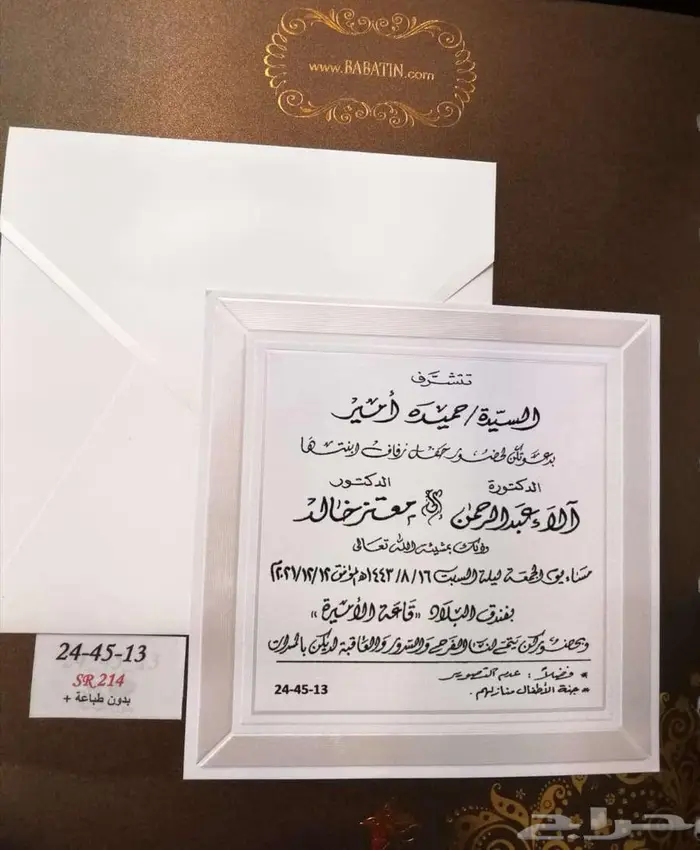 www.BABATIN.com
تتشرف
السيدة/حميده أمير
بدعوتكن لحضور حفل زفاف ابنتها
الدكتورة الدكتور
آلاء عبدالرحمن إلى معتز خالد
وذلك بمشيئة الله تعالى
مساء يوم الجمعة ليلة السبت ١٤٤٣/٨/١٦هـ الموافق
بفندق البلاد «قاعة الأميرة»
وبحضوركن يتم لنا الفرح والسرور والعاقبة لديكن بالمسرات
* فضلاً: عدم التصوير
* جنة الأطفال منازلهم.
24-45-13
24-45-13
SR 214
بدون طباعة +
حراج